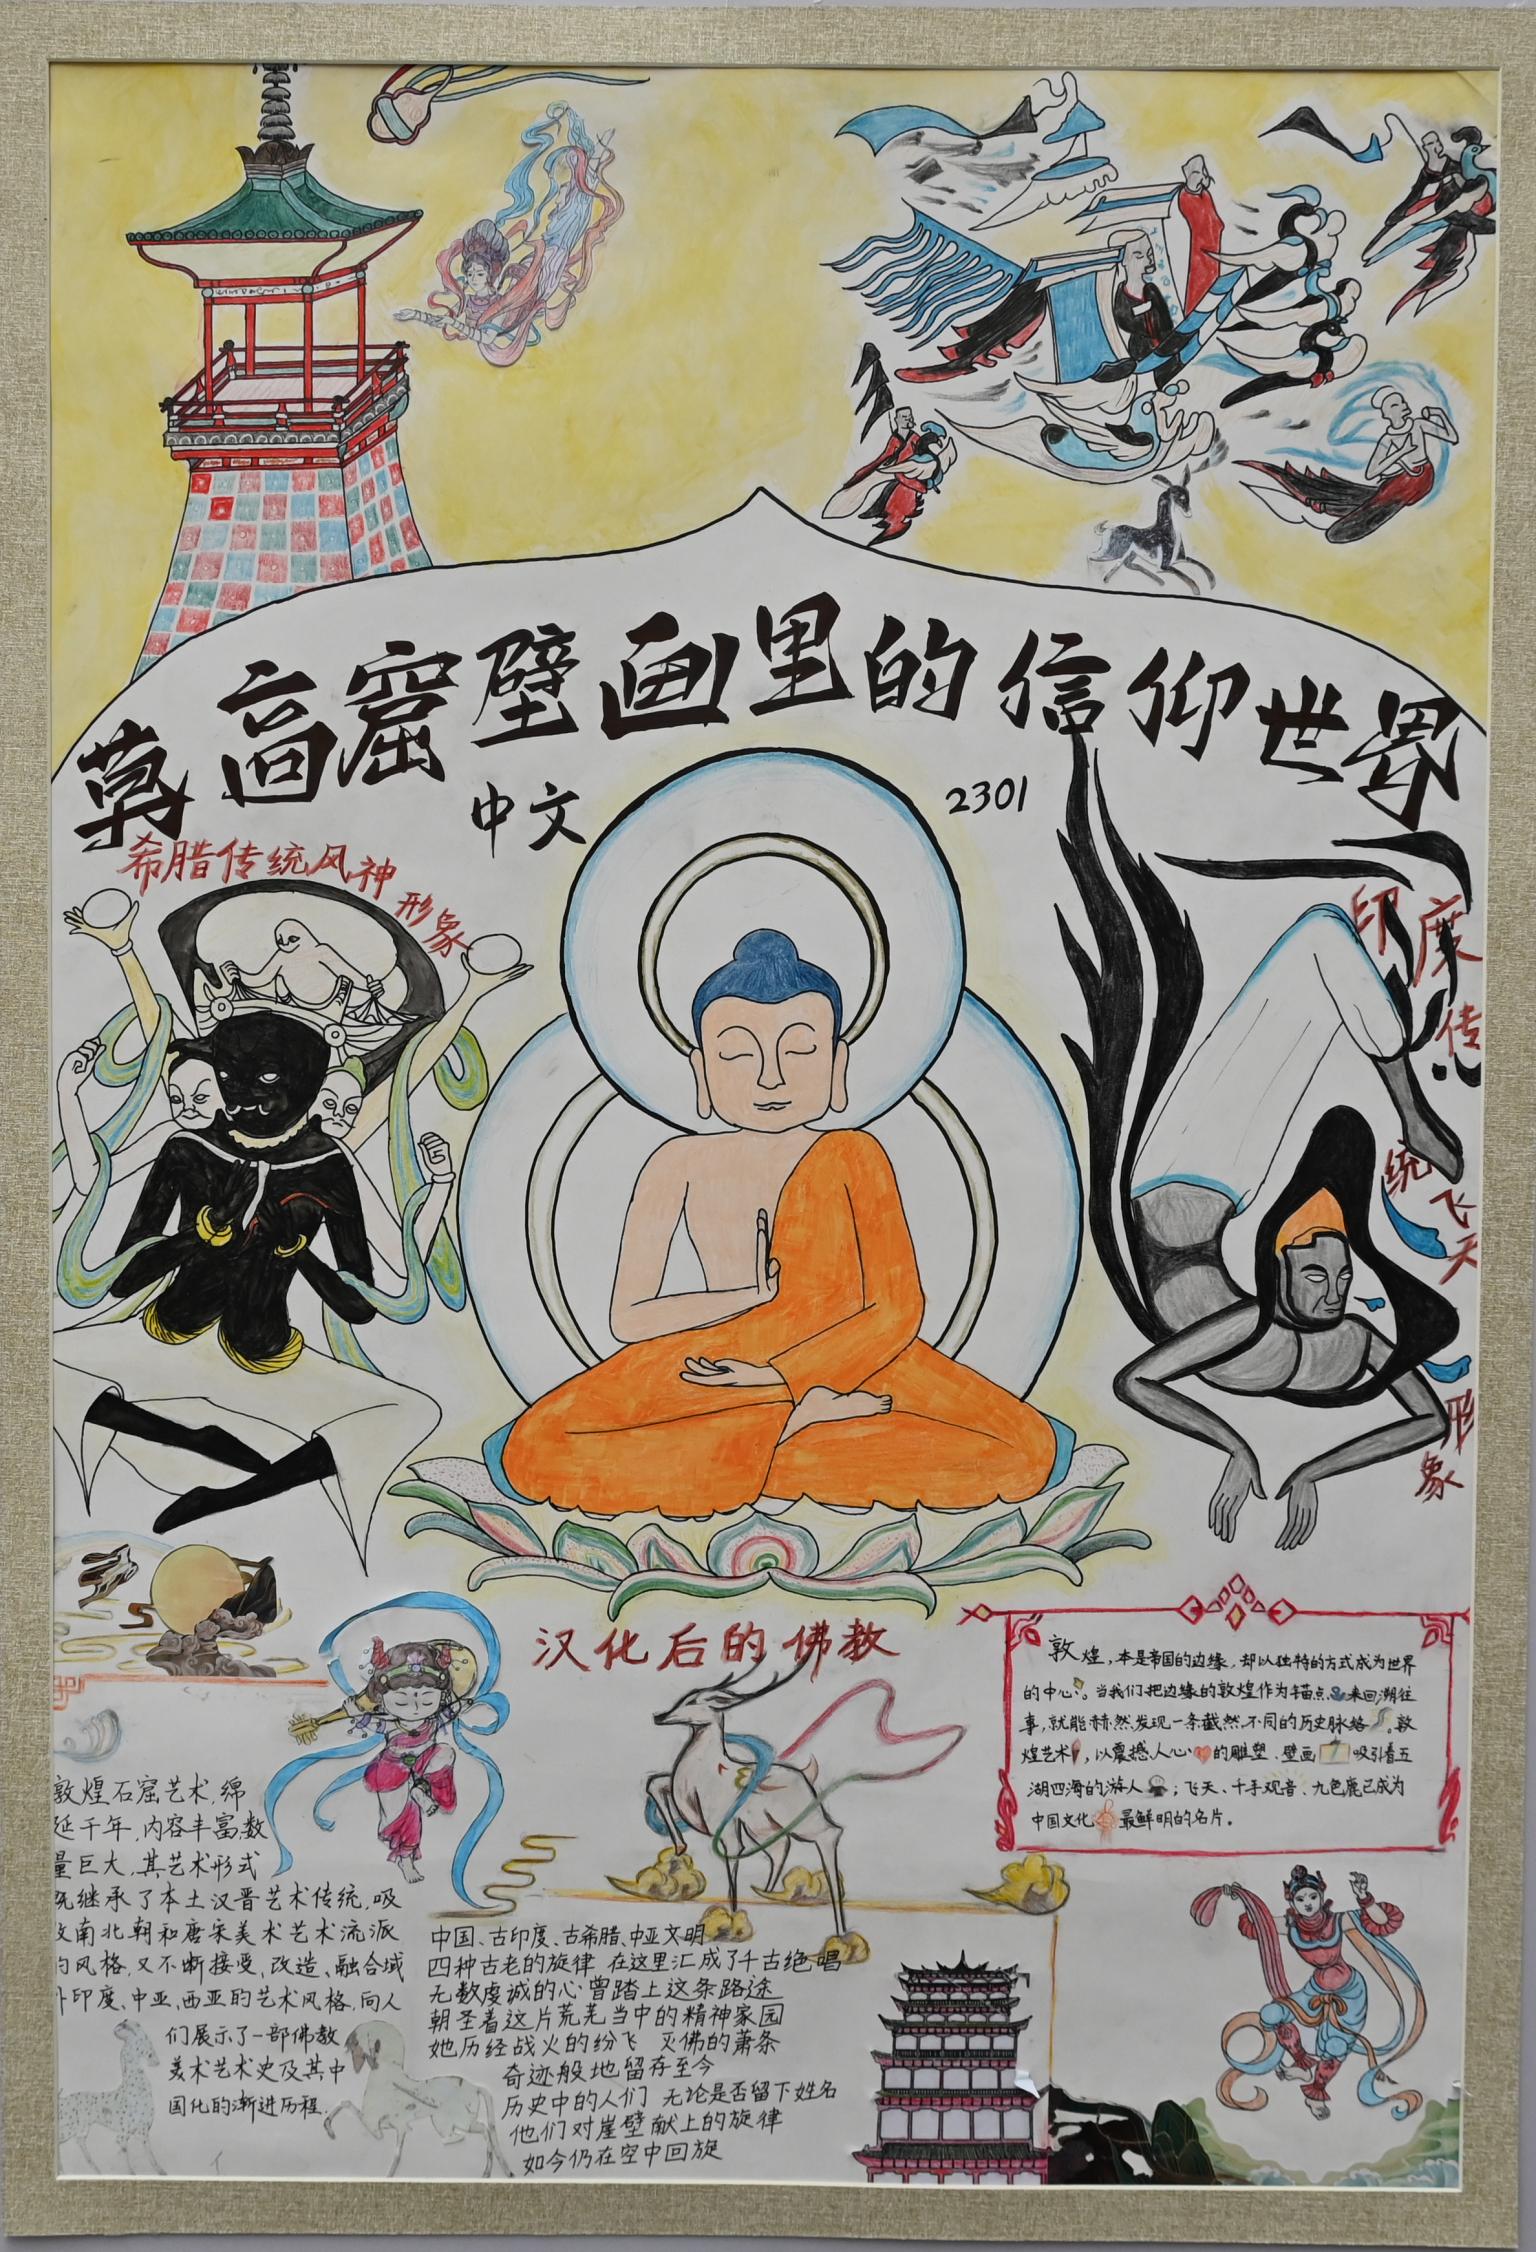 莫高窟壁画里的信仰世界
中文 2301
希腊传统风神形象
印度传统飞天形象
汉化后的佛教
敦煌,本是帝国的边缘,却以独特的方式成为世界
的中心。当我们把边缘的敦煌作为锚点来回溯往
事,就能赫然发现一条截然不同的历史脉络。敦
煌艺术,以震撼人心的雕塑、壁画吸引着五
湖四海的游人;飞天、千手观音、九色鹿已成为
中国文化最鲜明的名片。
敦煌石窟艺术,绵
延千年,内容丰富,数
量巨大,其艺术形式
既继承了本土汉晋艺术传统,吸
收南北朝和唐宋美术艺术流派
的风格,又不断接受、改造、融合域
外印度、中亚、西亚的艺术风格,向人
们展示了一部佛教
美术艺术史及其中
国化的渐进历程.
中国、古印度、古希腊、中亚文明
四种古老的旋律 在这里汇成了千古绝唱
无数虔诚的心 曾踏上这条路途
朝圣着这片荒芜当中的精神家园
她历经战火的纷飞 灭佛的萧条
奇迹般地留存至今
历史中的人们 无论是否留下姓名
他们对崖壁献上的旋律
如今仍在空中回旋